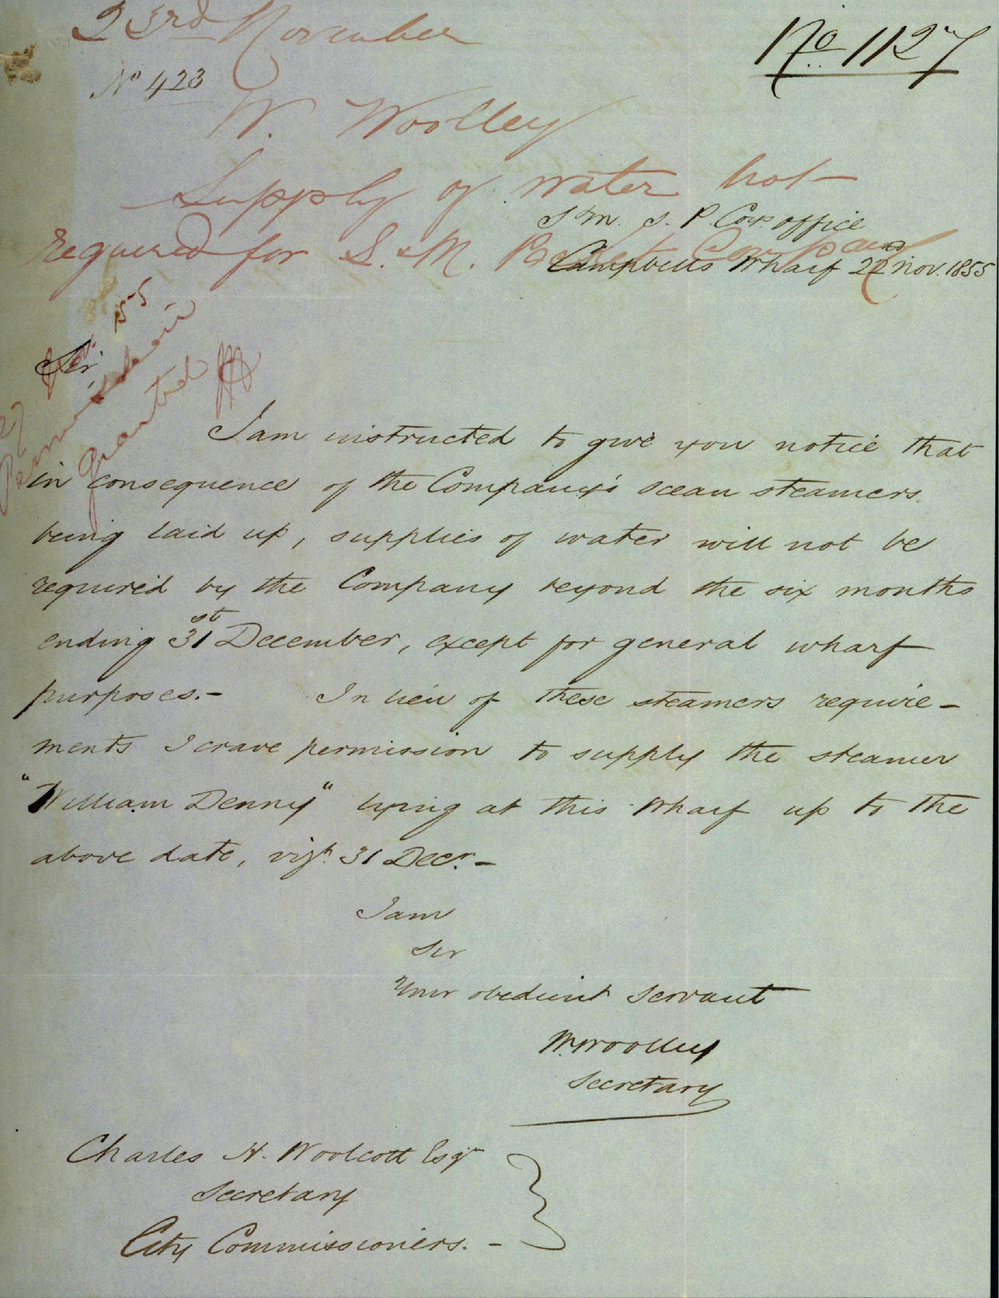 23rd November
No. 1127
No 423
W. Woolley
Supply of water not
required for S. M. Packet Company
S. M. S. P. Coys office
Campbells Wharf 22nd Nov. 1855
27 Nov. 55
Permission
granted
Sir,
I am instructed to give you notice that
in consequence of the Company's ocean steamers
being laid up, supplies of water will not be
required by the Company beyond the six months
ending 31st December, except for general wharf
purposes.- In lieu of these steamers require-
ments I crave permission to supply the steamer
"William Denny" lying at this Wharf up to the
above date, vizt. 31 Decr.-
I am
Sir
Your obedient servant
W. Woolley
Secretary
Charles H. Woolcott Esqr
Secretary
City Commissioners.-